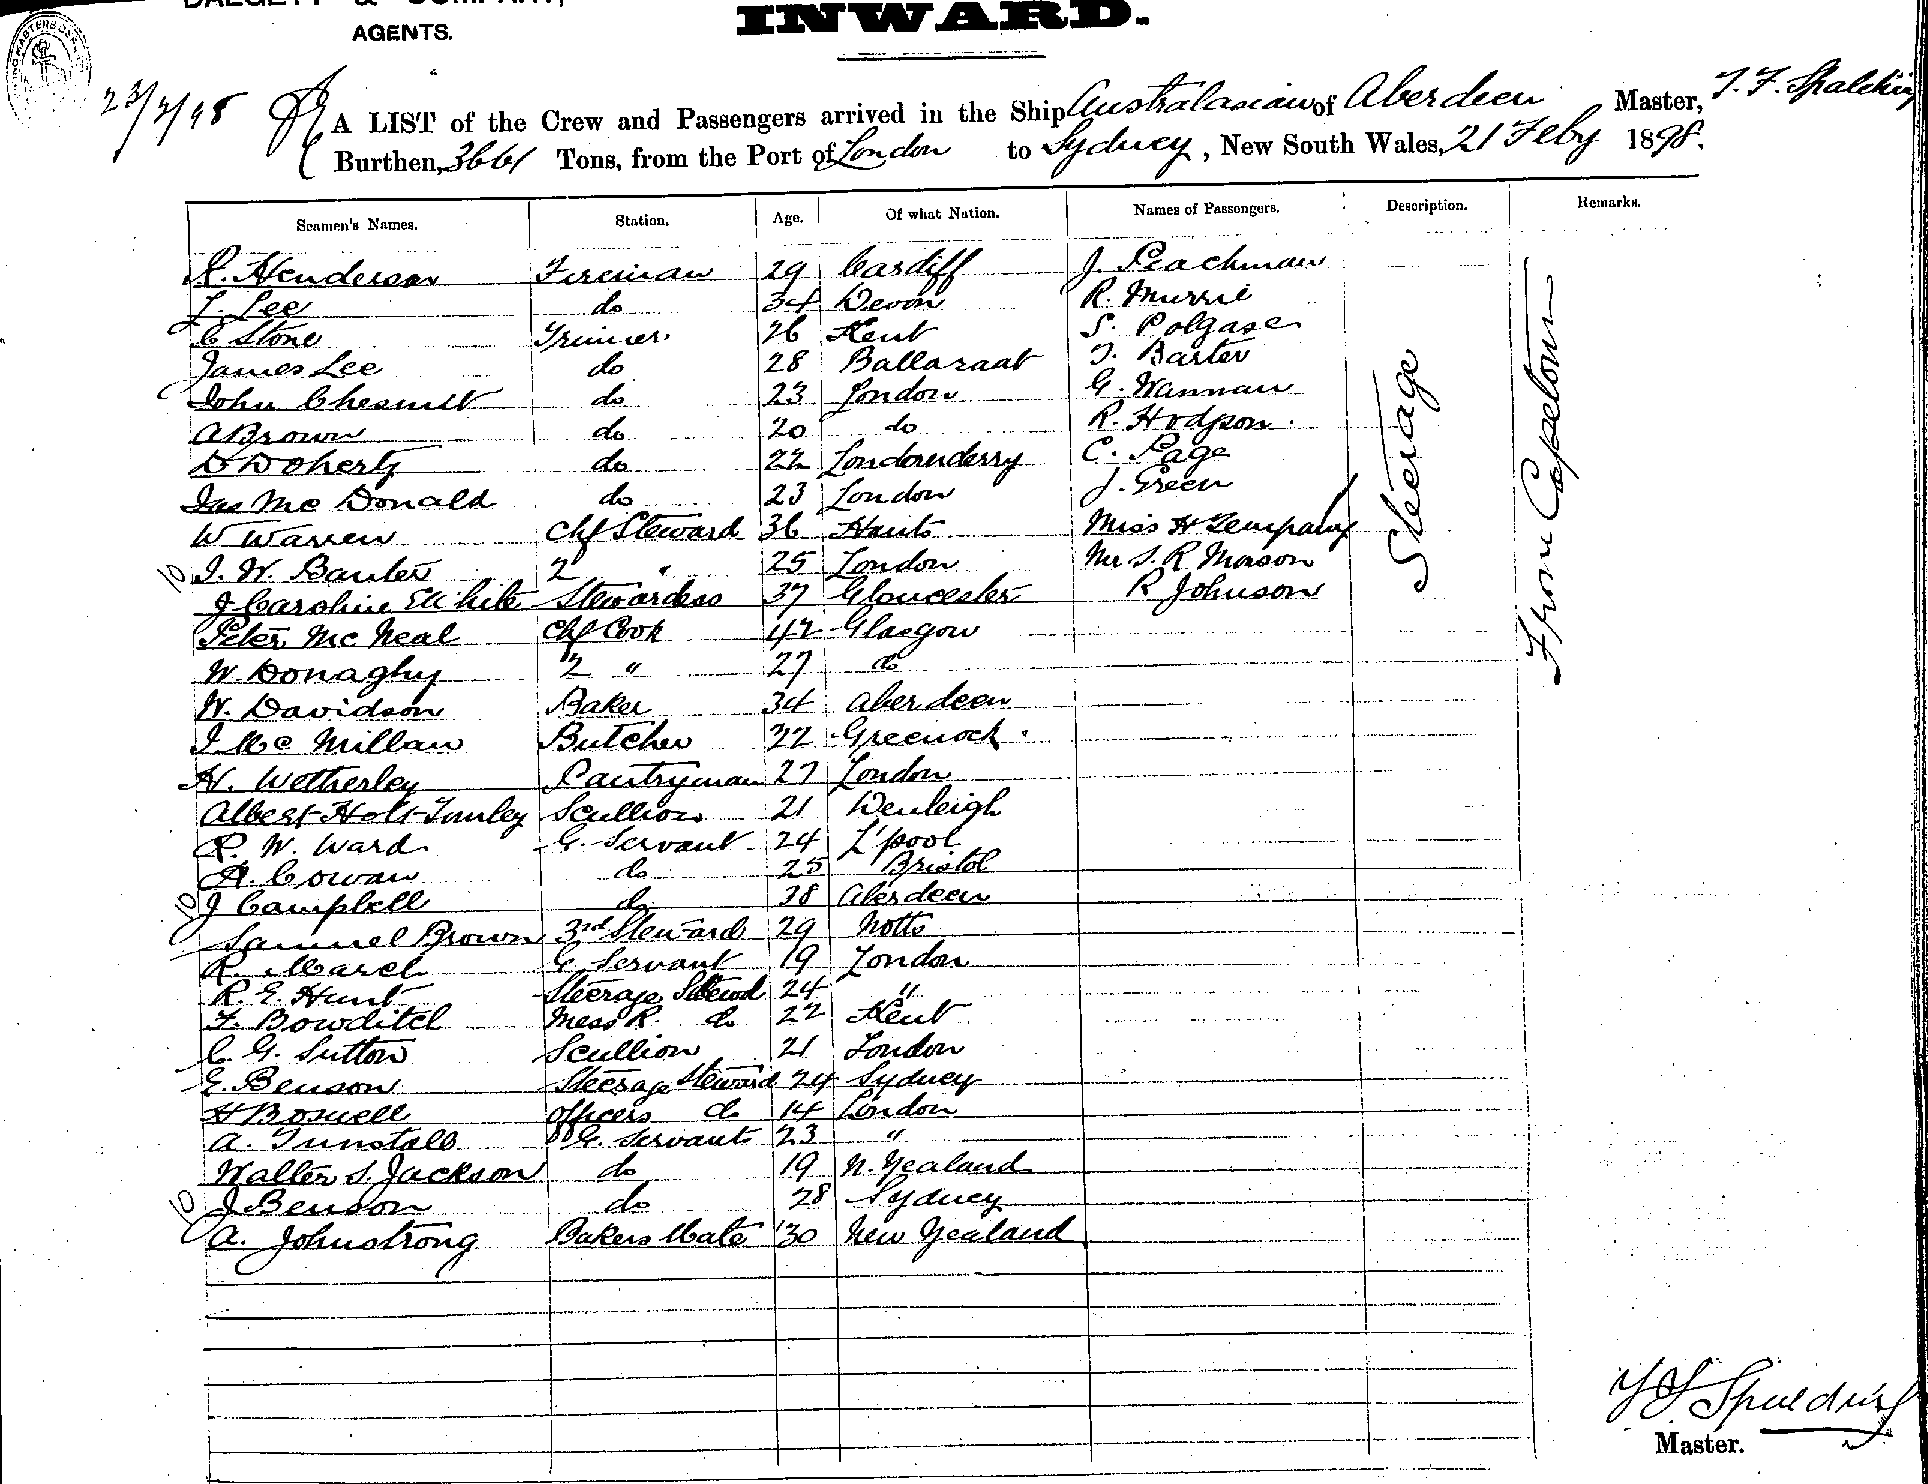 DALGETY & COMPANY,
AGENTS.
INWARD.
23/2/98
A LIST of the Crew and Passengers arrived in the Ship Australasian of Aberdeen Master, T. F. Spalding
Burthen, 3661 Tons, from the Port of London to Sydney, New South Wales, 21 Feby 1898.
Seamen's Names. Station. Age. Of what Nation. Names of Passengers. Description. Remarks.
R. Henderson Fireman 29 Cardiff J. Peachman
J. Lee do 34 Devon R. Murrie
C Stone Trimer 26 Kent S. Polgase
James Lee do 28 Ballaraat T. Barter
John Chesnutt do 23 London G. Wannan
A Brown do 20 do R. Hodgson
D Doherty do 22 Londonderry C. Page
Jas Mc Donald do 23 London J. Green
W Warren Chf Steward 36 Hants Miss H Tempany
J. W. Banter 2 " 25 London Mr S. R Mason
J Caroline White Stewardess 37 Gloucester R Johnson
Peter Mc Neal Chf Cook 42 Glasgow
W Donaghy 2 " 27 do
W. Davidson Baker 34 Aberdeen
J Mc Millan Butcher 32 Greenock
H. Wetherley Pantryman 27 London
Albert Holt Tunley Scullion 21 Wenleigh
R. W. Ward G. Servant 24 L'pool
A. Cowan do 25 Bristol
J Campbell do 38 Aberdeen
Samuel Brown 3rd Steward 29 Notts
R. March G Servant 19 London
R. E. Hunt Steerage Stewd 24 "
F. Bowditch Mess R. do 22 Kent
C. G. Sutton Scullion 21 London
E. Benson Steerage Steward 24 Sydney
H Boswell Officers do 14 London
A. Tunstall G. Servant 23 "
Walter S. Jackson do 19 N. Zealand
J Benson do 28 Sydney
A. Johnstrong Bakers Mate 30 New Zealand
Steerage
From Capetown
T F Spalding
Master.